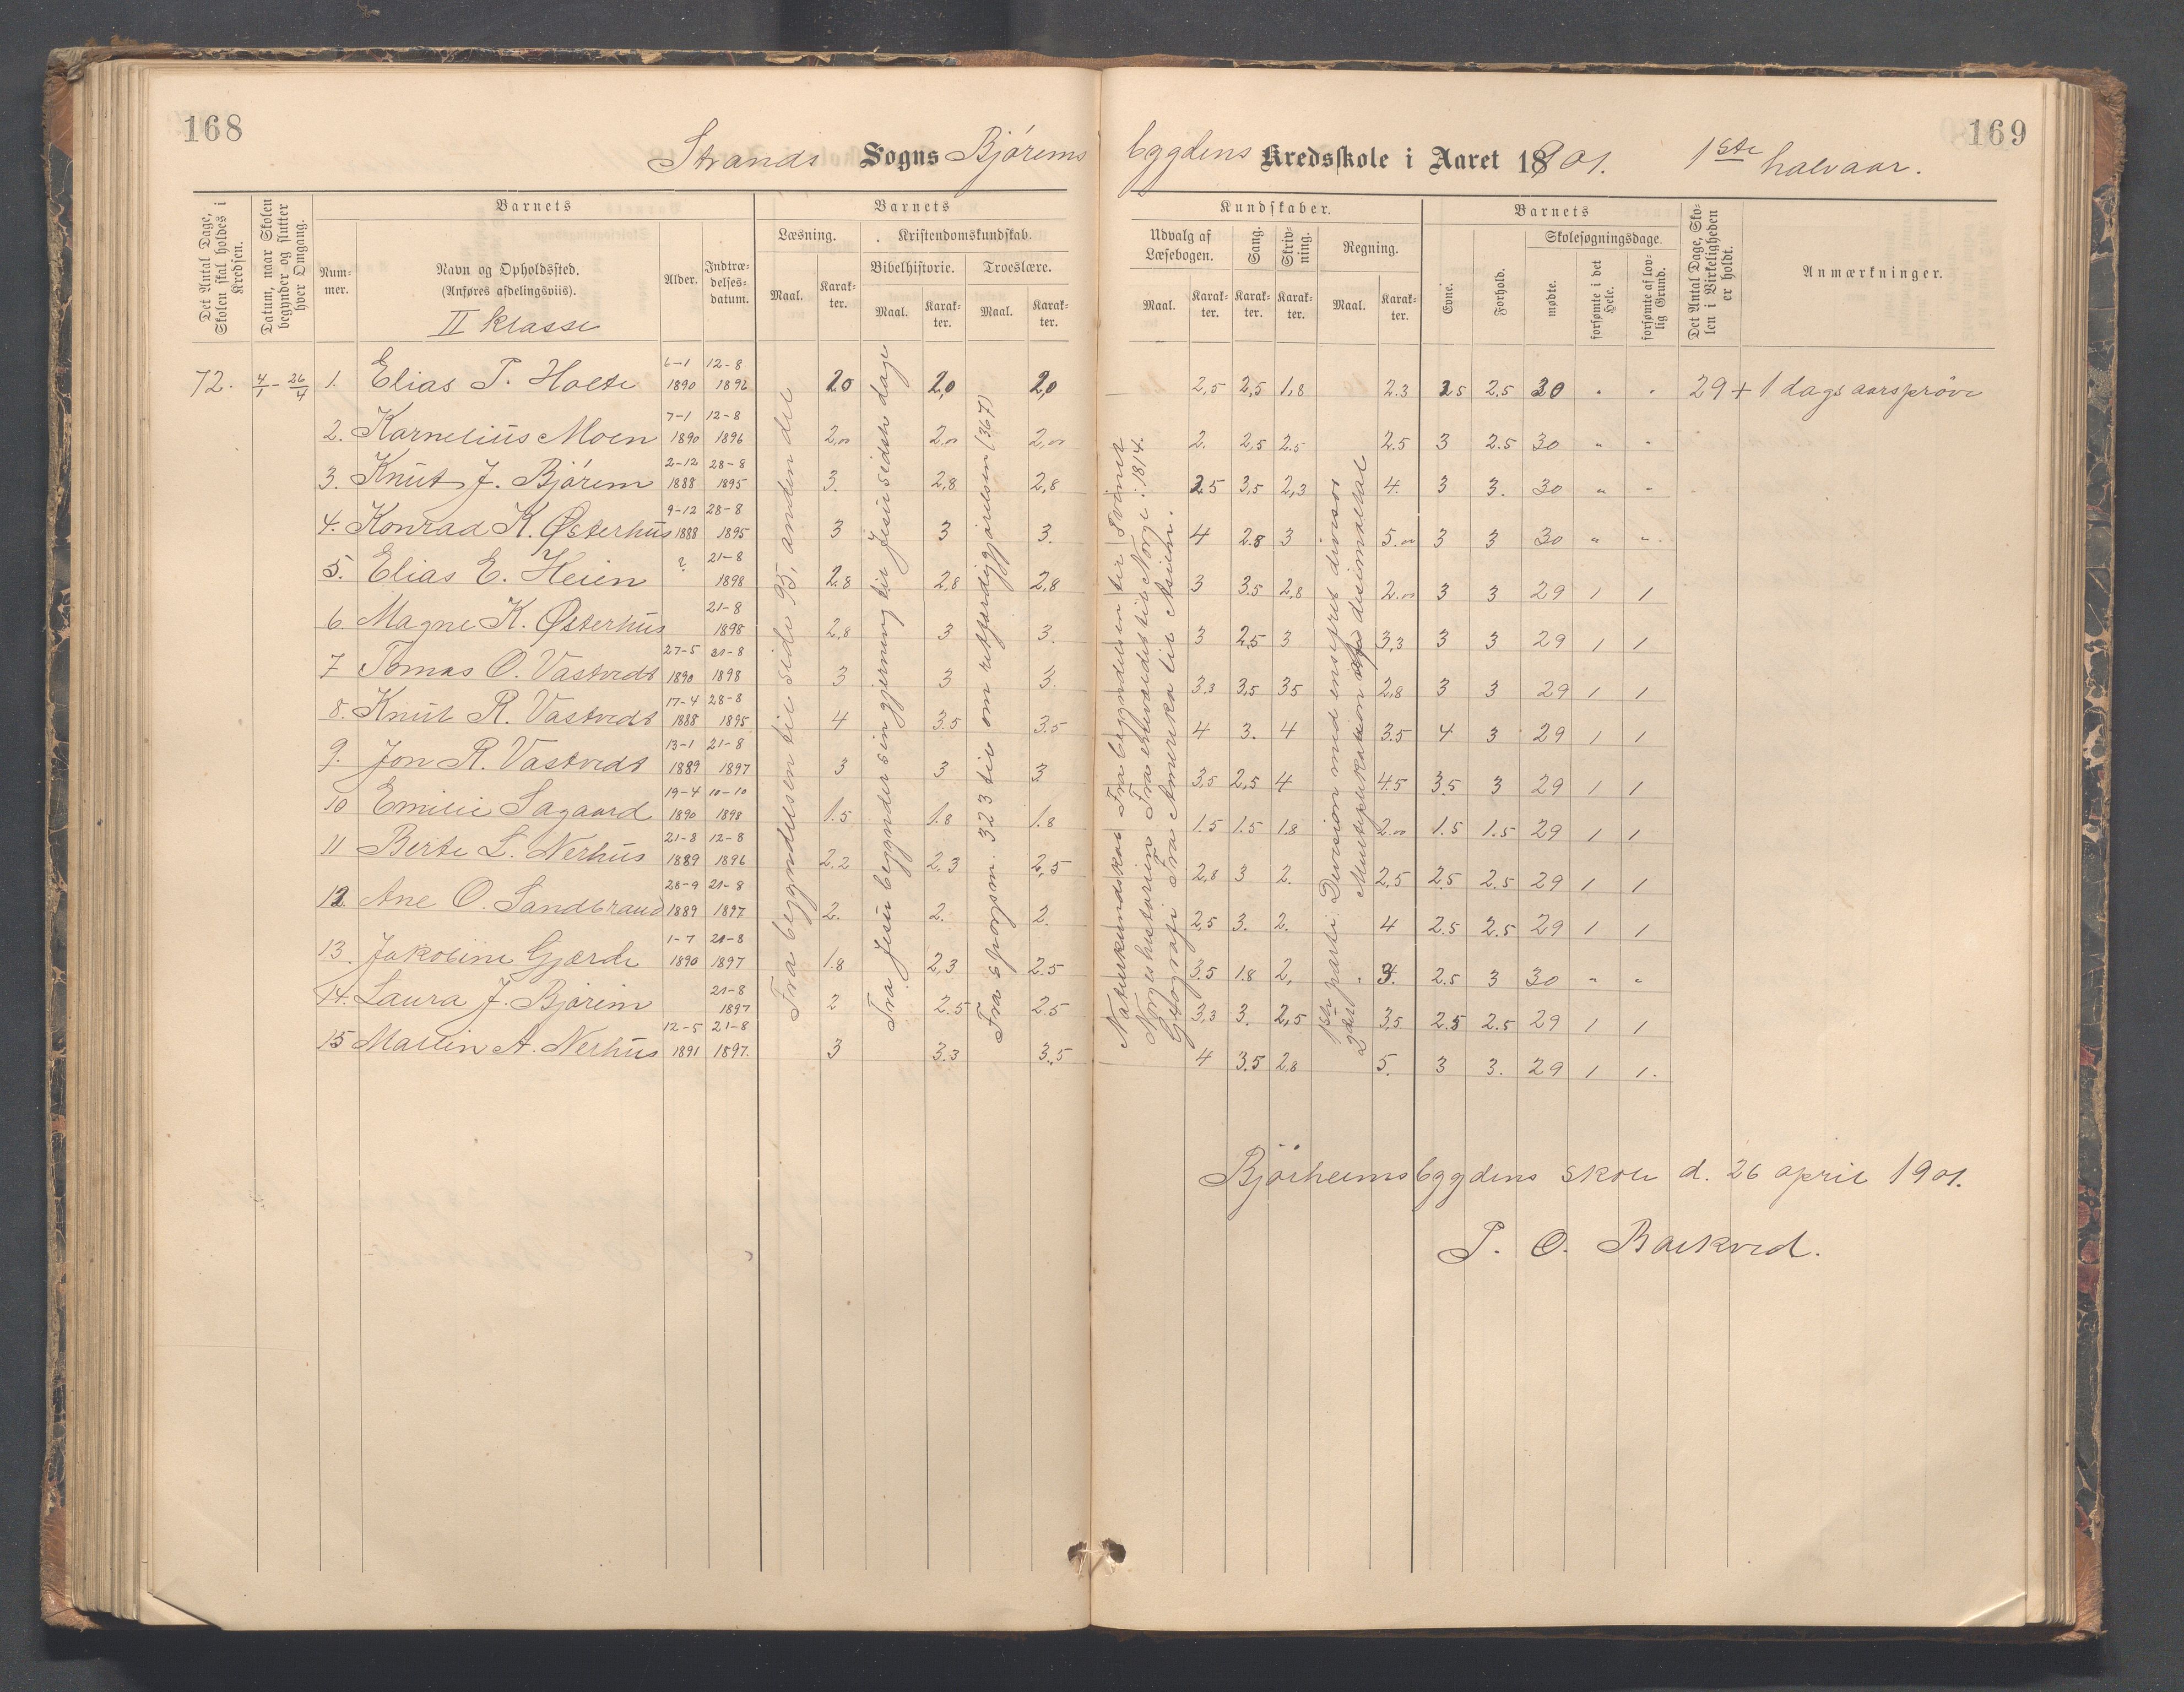 168
169
Strands Sogns Bjørems bygdens Kredsskole i Aaret 1901. 1ste halvaar.
Det Antal Dage, Skolen skal holdes i Kredsen.
Datum, naar Skolen begynder og slutter hver Omgang.
Barnets
Nummer.
Navn og Opholdssted.
(Anføres afdelingsviis).
II klasse
Alder.
Indtrædelses-datum.
Barnets
Læsning.
Maal.
Karakter.
Kristendomskundskab.
Bibelhistorie.
Maal.
Karakter.
Troeslære.
Maal.
Karakter.
Kundskaber.
Udvalg af Læsebogen.
Maal.
Karakter.
Sang.
Karakter.
Skrivning.
Karakter.
Regning.
Maal.
Karakter.
Barnets
Evne.
Forhold.
Skolesøgningsdage.
mødte.
forsømte i det Hele.
forsømte af lovlig Grund.
Det Antal Dage, Skolen i Virkeligheden er holdt.
Anmærkninger.
72. 4/1 - 26/4 1. Elias T. Holte 6-1 1890 12-8 1896 20 2,0 2,0 2,5 2,5 1,8 2.3 25 2.5 30 " " 29 + 1 dags aarsprøve
2. Karnelius Moen 7-1 1890 12-8 1896 2,00 2,00 2,00 2. 2,5 2.5 2.5 3 2.5 30 " "
3. Knut J. Bjørem 2-12 1888 28-8 1895 3. 2,8 2,8 25 3,5 2,3 4. 3 3. 30 " "
4. Konrad K. Østerhus 9-12 1888 28-8 1895 3 3 3. 4 2.8 3 5.00 3 3 30 " "
5. Elias E. Heien ? 21-8 1898 2.8 2,8 2,8 3 3.5 2,8 2.00 3 3 29 1 1
6. Magne K. Østerhus 21-8 1898 2,8 3 3. 3 2,5 3 3,3 3 3 29 1 1
7 Tomas O. Vastvedt 27-5 1890 21-8 1898 3 3 3. 3.3 3,5 35 2,8 3 3 29 1 1
8. Knut R. Vastvedt 17-4 1888 28-8 1895 4 3.5 3.5 4 3. 4 3.5 4 3 29 1 1
9. Jon R. Vastvedt 13-1 1889 21-8 1897 3 3 3 3,5 2,5 4 4.5 3.5 3 29 1 1
10 Emilie Sagaard 19-4 1890 10-10 1898 1.5 1.8 1.8 1.5 1.5 1.8 2.00 1.5 1.5 29 1 1
11 Berte L. Nerhus 21-8 1889 12-8 1896 2.2 2,3 2,5 2,8 3 2. 2,5 25 2.5 29 1 1
12. Ane O. Sandbraud 28-9 1889 21-8 1897 2. 2. 2. 2,5 3. 2. 4 2.5 2.5 29 1 1
13. Jakobine Gjærde 1-7 1890 21-8 1897 1.8 2,3 2.5 3.5 1.8 2, 3. 2.5 3 30 " "
14. Laura J. Bjørem 21-8 1897 2 2.5 2.5 3,3 3. 2,5 3,5 2.5 2.5 29 1 1
15 Martin A. Nerhus 12-5 1891 21-8 1897. 3 3.3 3.5 4 3.5 2.8 5. 3 3. 29 1 1.
Fra begyndelsen til side 95, anden del
Fra Jesu begyndersin gjerning til Jesu sidste dage
Fra spørgsm. 323 til om retfærdiggjørelsen (367)
Naturkundskab Fra begyndelsen til Svømet
Norgeshistorien Fra til Norge i 1814.
Geografi Fra Amerika til Asien.
1ste parti Division med ensifret divisor
2det Multiplikation af desimaltal
Bjørheimsbygdens skole d. 26 april 1901.
T. O. Barkved.